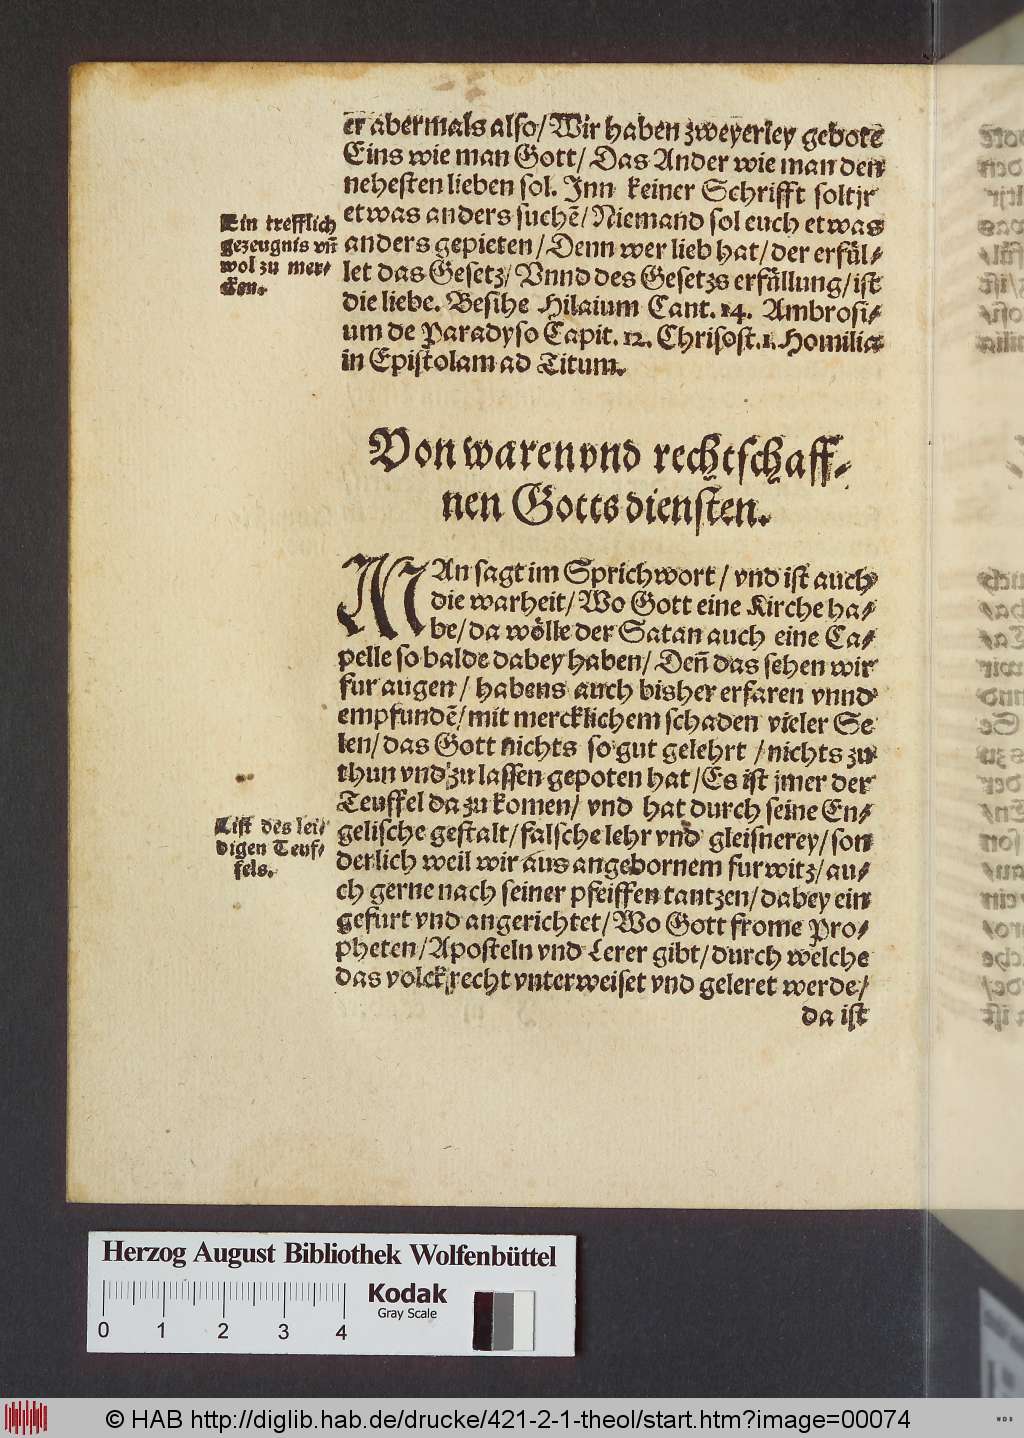 er abermals also/ Wir haben zweyerley gebotē
Eins wie man Gott/ Das Ander wie man den
nehesten lieben sol. Inn keiner Schrifft soltjr
etwas anders suchē/ Niemand sol euch etwas
anders gepieten/ Denn wer lieb hat/ der erfül⸗
let das Gesetz/ Vnnd des Gesetzs erfüllung/ ist
die liebe. Besihe Hilaium Cant. 14. Ambrosi⸗
um de Paradyso Capit. 12. Chrisost. 1. Homilia
in Epistolam ad Titum.
Ein trefflich
gezeugnis vn̄
wol zu mer⸗
cken.
Von waren vnd rechtschaff⸗
nen Gotts diensten.
MAn sagt im Sprichwort/ vnd ist auch
die warheit/ Wo Gott eine Kirche ha⸗
be/ da wölle der Satan auch eine Ca⸗
pelle so balde dabey haben/ Den̄ das sehen wir
fur augen/ habens auch bisher erfaren vnnd
empfundē/ mit mercklichem schaden vieler Se
len/ das Gott nichts so gut gelehrt / nichts zu
thun vnd zu lassen gepoten hat/ Es ist jmer der
Teuffel da zu komen/ vnd hat durch seine En⸗
gelische gestalt/ falsche lehr vnd gleisnerey/ son
derlich weil wir aus angebornem furwitz/ au⸗
ch gerne nach seiner pfeiffen tantzen/ dabey ein
gefurt vnd angerichtet/ Wo Gott frome Pro⸗
pheten/ Aposteln vnd Lerer gibt/ durch welche
das volck recht vnterweiset vnd geleret werde/
List des lei⸗
digen Teuf⸗
fels.
da ist
Herzog August Bibliothek Wolfenbüttel
Kodak
Gray Scale
0 1 2 3 4
© HAB http://diglib.hab.de/drucke/421-2-1-theol/start.htm?image=00074